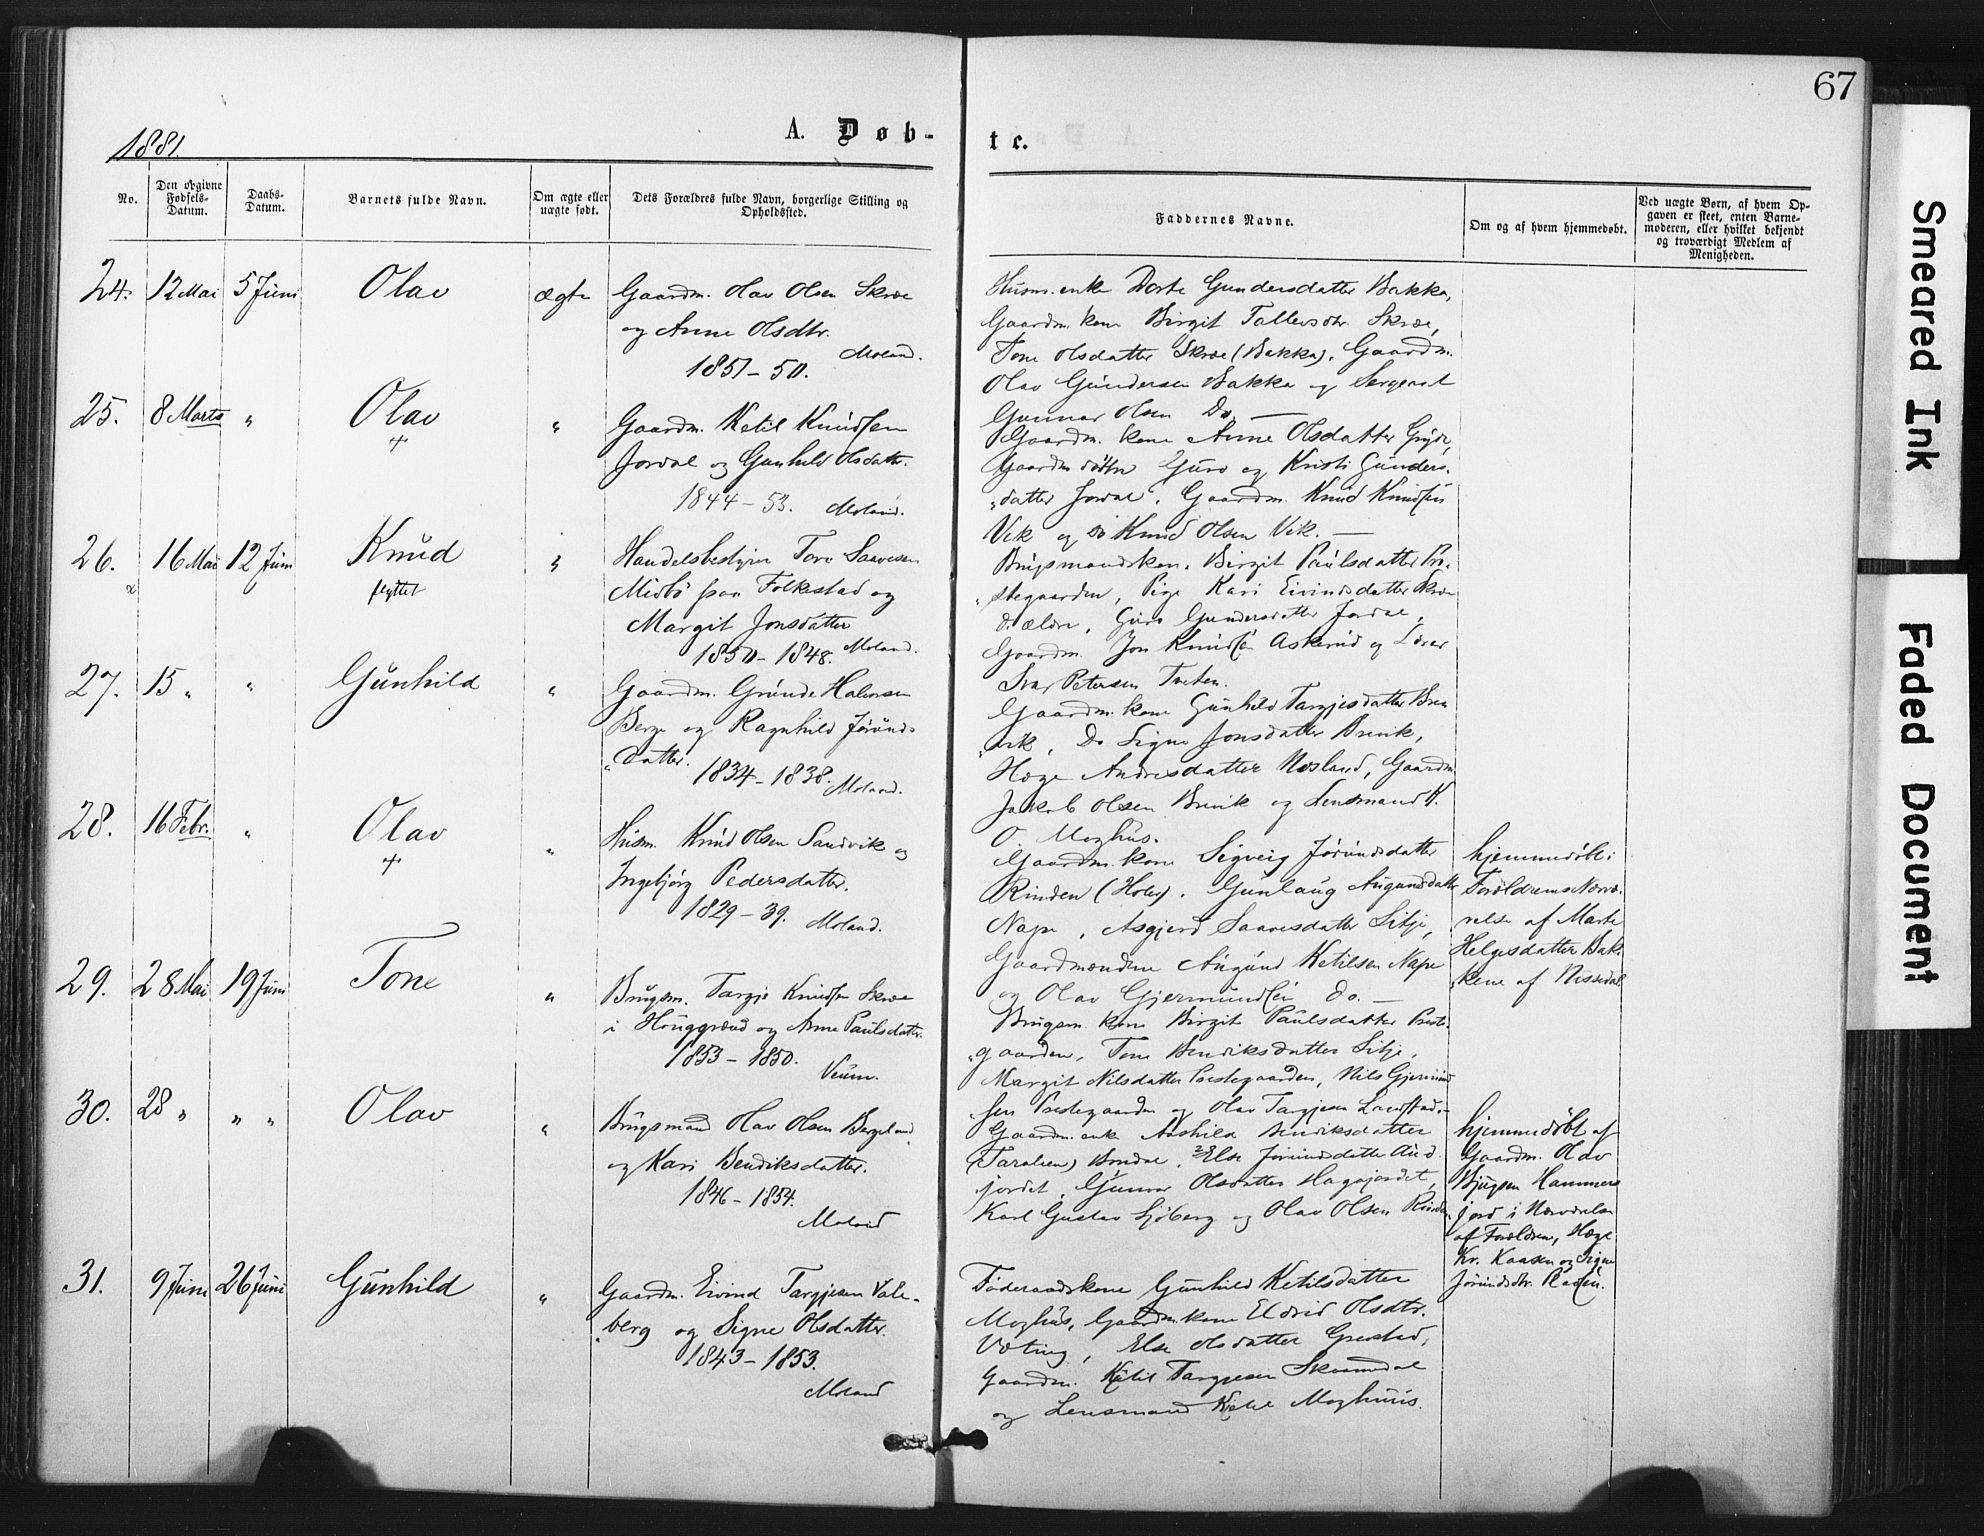 67
1881.
A. Døb-
te.
No.
Den opgivne Fødsels-Datum.
Daabs-Datum.
Barnets fulde Navn.
Om ægte eller uægte født.
Dets Forældres fulde Navn, borgerlige Stilling og Opholdssted.
Faddernes Navne.
Om og af hvem hjemmedøbt.
Ved uægte Børn, af hvem Op-
gaven er skeet, enten Barne-
moderen, eller hvilket bekjendt
og troværdigt Medlem af
Menigheden.
24. 12 Mai 5 Juni Olav ægte
Gaardm. Olav Olsen Skree
og Anne Olsdtr.
Moland.
1851 - 50.
Husm. enke Dorte Gundersdatter Bakka,
Gaardm. kone Birgit Tallevsdtr. Skree,
Tone Olsdatter Skree (Bakka), Gaardm.
Olav Gundersen Bakka og Sergeant
Gunnar Olsen Do. —
25. 8 Marts " Olav "
+
Gaardm. Ketil Knudsen
Jordal og Gunhild Olsdatr.
1844 - 53. Moland.
Gaardm. kone Anne Olsdatter
Gaardm. døttre Guro og Kristi Gunders-
"datter Jordal, Gaardm. Knud Knudsen
Vik og do Knud Olsen Vik. —
26. 16 Mai 12 Juni Knud "
flyttet
Handelsbestyrer Tov Saavesen
Midbö paa Folkestad og
Margit Jonsdatter
1850 - 1848. Moland.
Brugsmandskon. Birgit Paulsdatter Pre-
"stegaarden, Pige Kari Eivindsdatter Skree
d. ældre, Guro Gundersdatter Jordal,
Gaardm. Jon Knudsen Askerud og Lærer
Ivar Petersen Tveten.
27. 15 " " Gunhild "
Gaardm. Grunde Halvorsen
Berge og Ragnhild Jörunds-
"datter.
1834 - 1838. Moland.
Gaardm. kone Gunhild Targjesdatter Bre-
"vik, Do Signe Jonsdatter Brevik,
Hæge Andresdatter Mosland, Gaardm.
Jakob Olsen Brevik og Lensmand K.
O. Moghus.
28. 16 Febr. " Olav "
+
Husm. Knud Olsen Sandvik og
Ingebjörg Pedersdatter.
1829 - 39. Moland.
Gaardm. kone Sigveig Jörundsdatter
Rinden (Holen), Gunlaug Augundsdatter
Nape, Asgjerd Saavesdatter Sitje,
Gaardmændene Augund Ketilsen Nape
og Olav Gjermundsen do. —
hjemmedöbt i
Forældrenes Nærvæ-
relse af Marte
Helgesdatter Bak-
"kene af Nissedal
29. 28 Mai 19 Juni Tone "
Brugsm. Targje Knudsen Skree
i Houggrend og Anne Paulsdatter.
1853 - 1850.
Veum.
Brugsm. kone Birgit Paulsdatter Preste-
"gaarden, Tone Bendiksdatter Sitje,
Margit Nilsdatter Prestegaarden, Nils Gjermund
sen Prestegaarden og Olav Targjesen Landstad.-
30. 28 " " " Olav "
Brugsmand Olav Olsen Bergland
og Kari Bendiksdatter.
1846 - 1854.
Moland
Gaardm. enke Aashild Bendiksdatter
(Taraldsen) Bondal, Else Jörundsdatter
jordet, Gunvor Olsdatter Hagajordet,
Karl Gustav Sjöberg og Olav Olsen Rinden
hjemmedöbt af
Gaardm. Olav
Bjugsen Hammers
jord i Nærværelse
af Forældren, Hæge
Kr. Kaasen og Signe
Jörundsdtr.
31. 9 Juni 26 Juni Gunhild "
Gaardm. Eivind Targjesen Vale-
"berg og Signe Olsdatter.
1843 - 1853.
Moland
Föderaadskone Gunhild Ketilsdatter
Moghus, Gaardm. kone Eldrid Olsdtr.
Vöting, Else Olsdatter
Gaardm. Ketil Targjesen Skoamdal
og Lensmand Kjetil Moghuus.
Smeared Ink
Faded Document